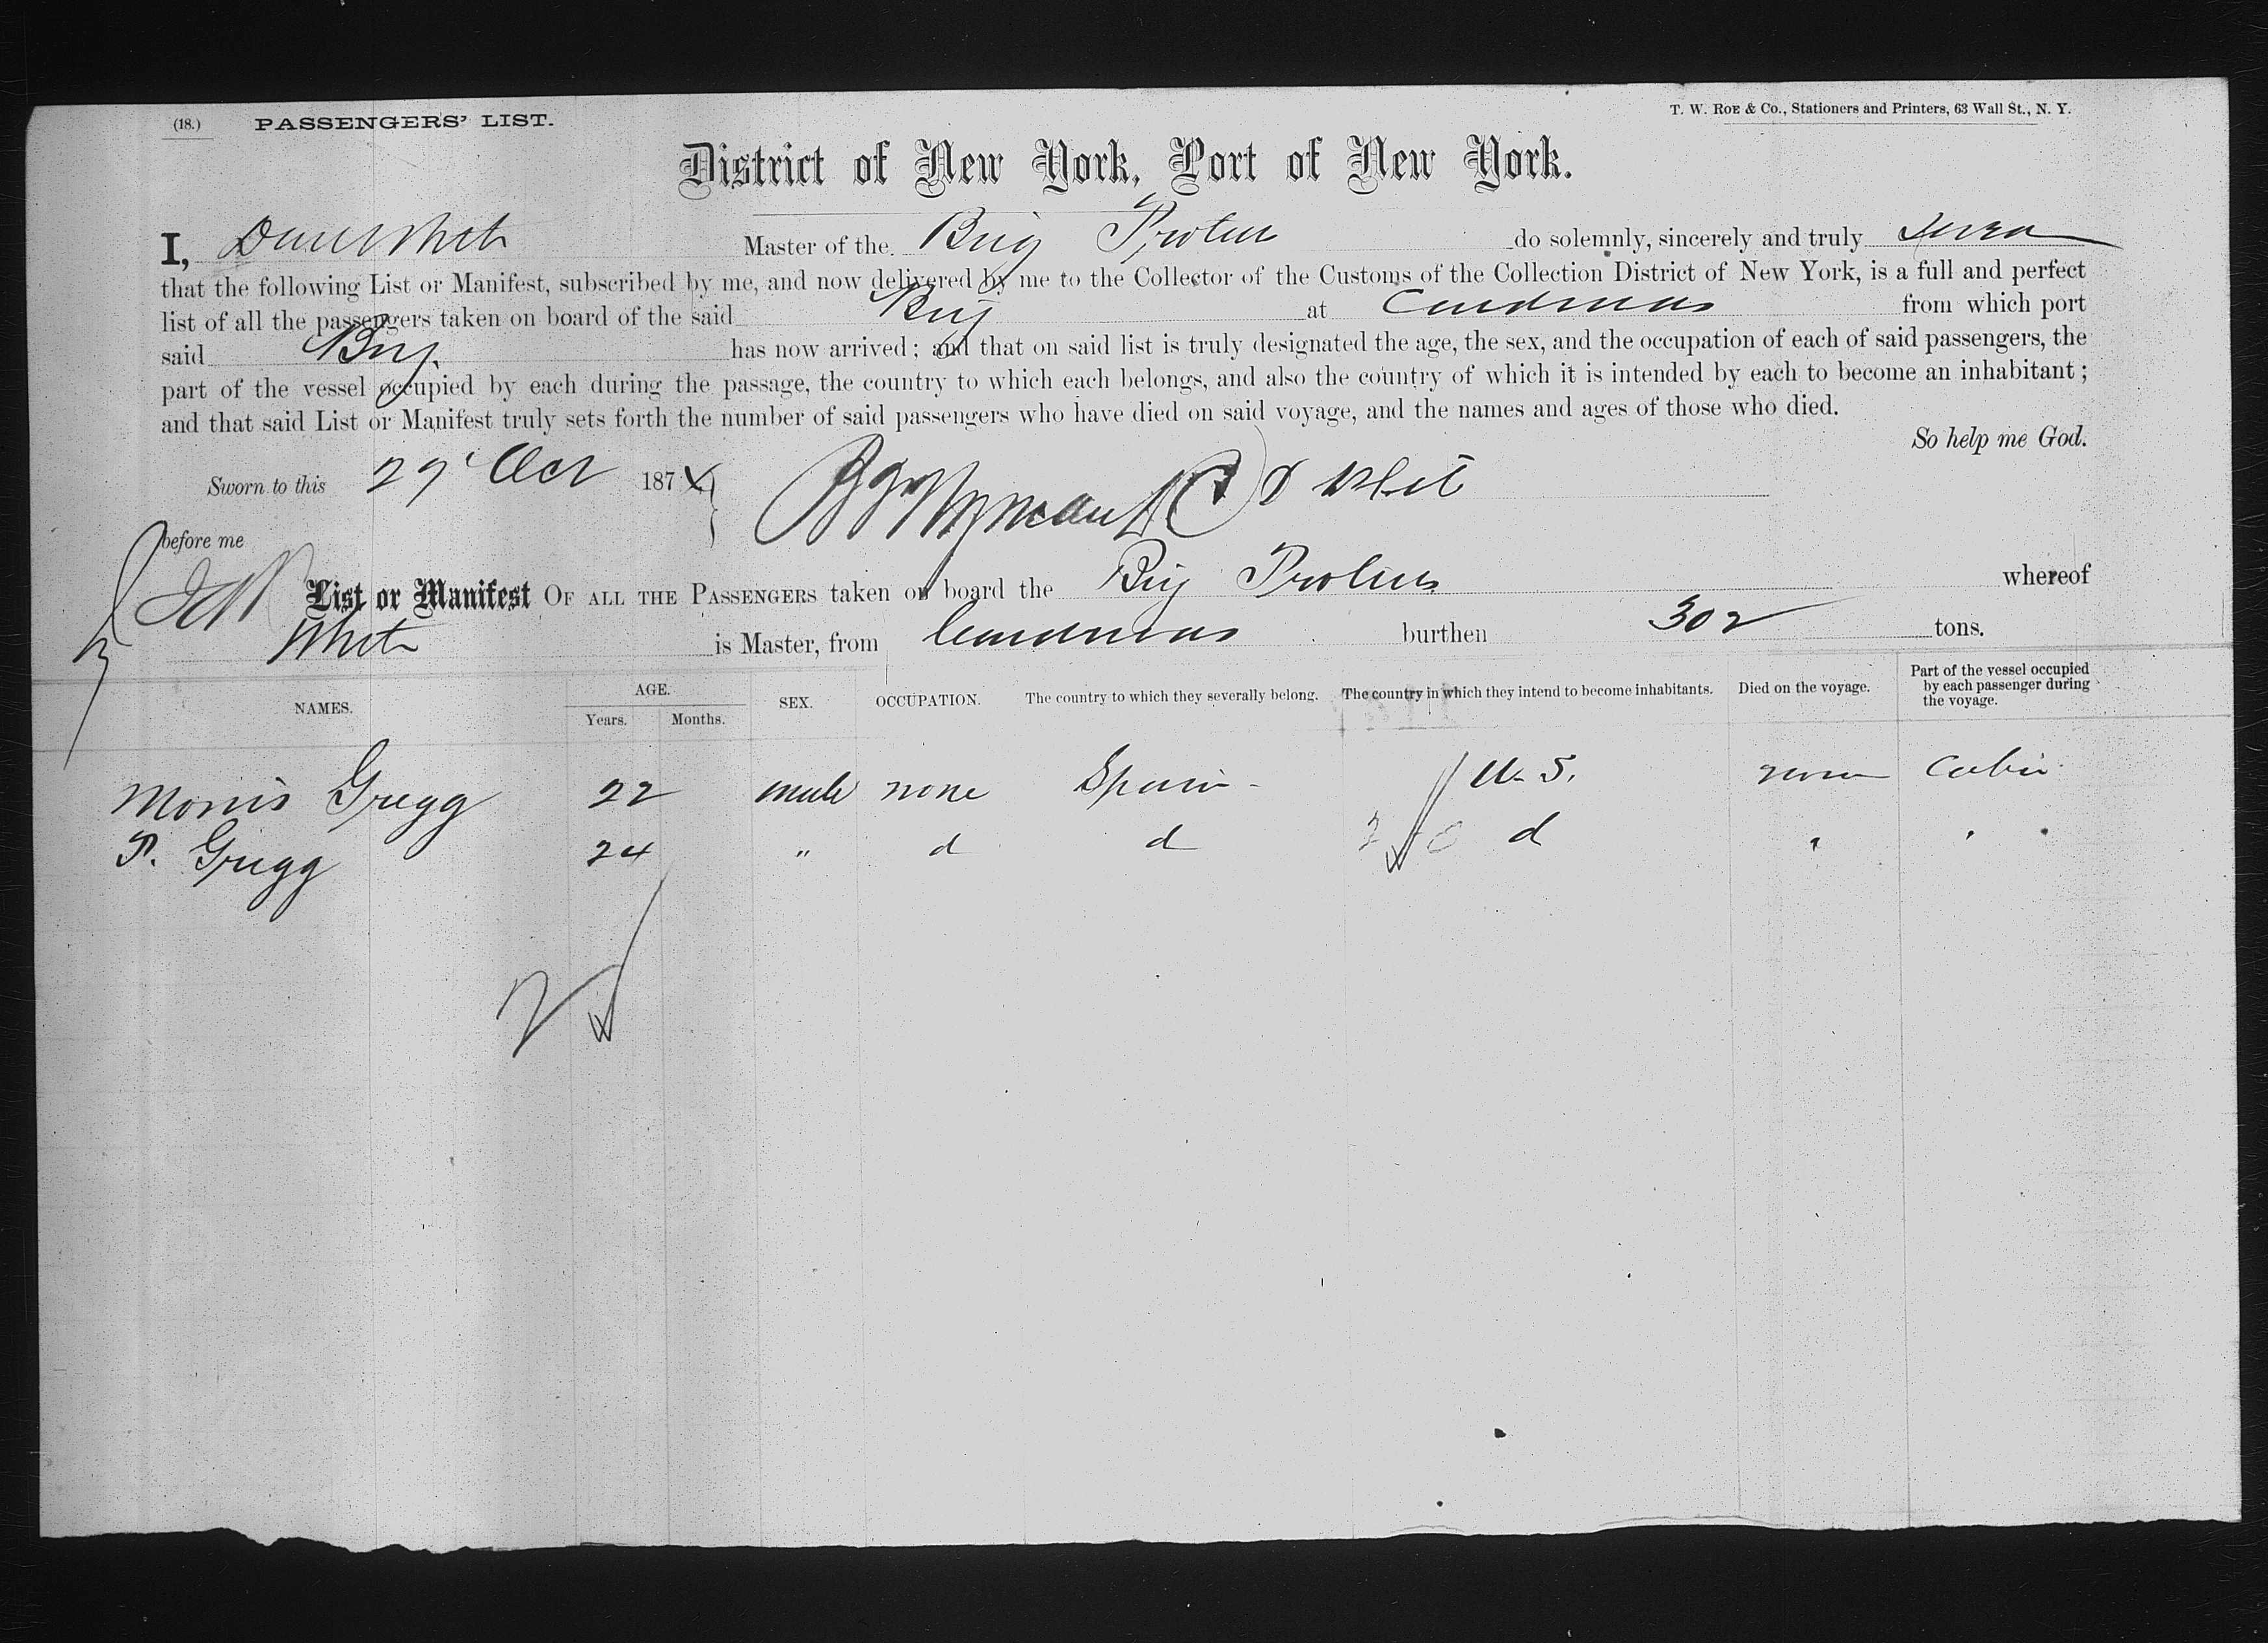 (18.) PASSENGERS' LIST.
T. W. ROE & Co., Stationers and Printers, 63 Wall St., N. Y.
District of New York, Port of New York.
I, Master of the Brig do solemnly, sincerely and truly
that the following List or Manifest, subscribed by me, and now delivered by me to the Collector of the Customs of the Collection District of New York, is a full and perfect
list of all the passengers taken on board of the said Brig at from which port
said Brig has now arrived; and that on said list is truly designated the age, the sex, and the occupation of each of said passengers, the
part of the vessel occupied by each during the passage, the country to which each belongs, and also the country of which it is intended by each to become an inhabitant;
and that said List or Manifest truly sets forth the number of said passengers who have died on said voyage, and the names and ages of those who died.
So help me God.
Sworn to this 29 Oct 187
before me
List or Manifest OF ALL THE PASSENGERS taken on board the Brig whereof
is Master, from burthen 302 tons.
NAMES. AGE. Years. Months. SEX. OCCUPATION. The country to which they severally belong. The country in which they intend to become inhabitants. Died on the voyage. Part of the vessel occupied by each passenger during the voyage.
Morris Gregg 22 male none Spain U. S. none Cabin
P. Gregg 24 " d d d " "
2